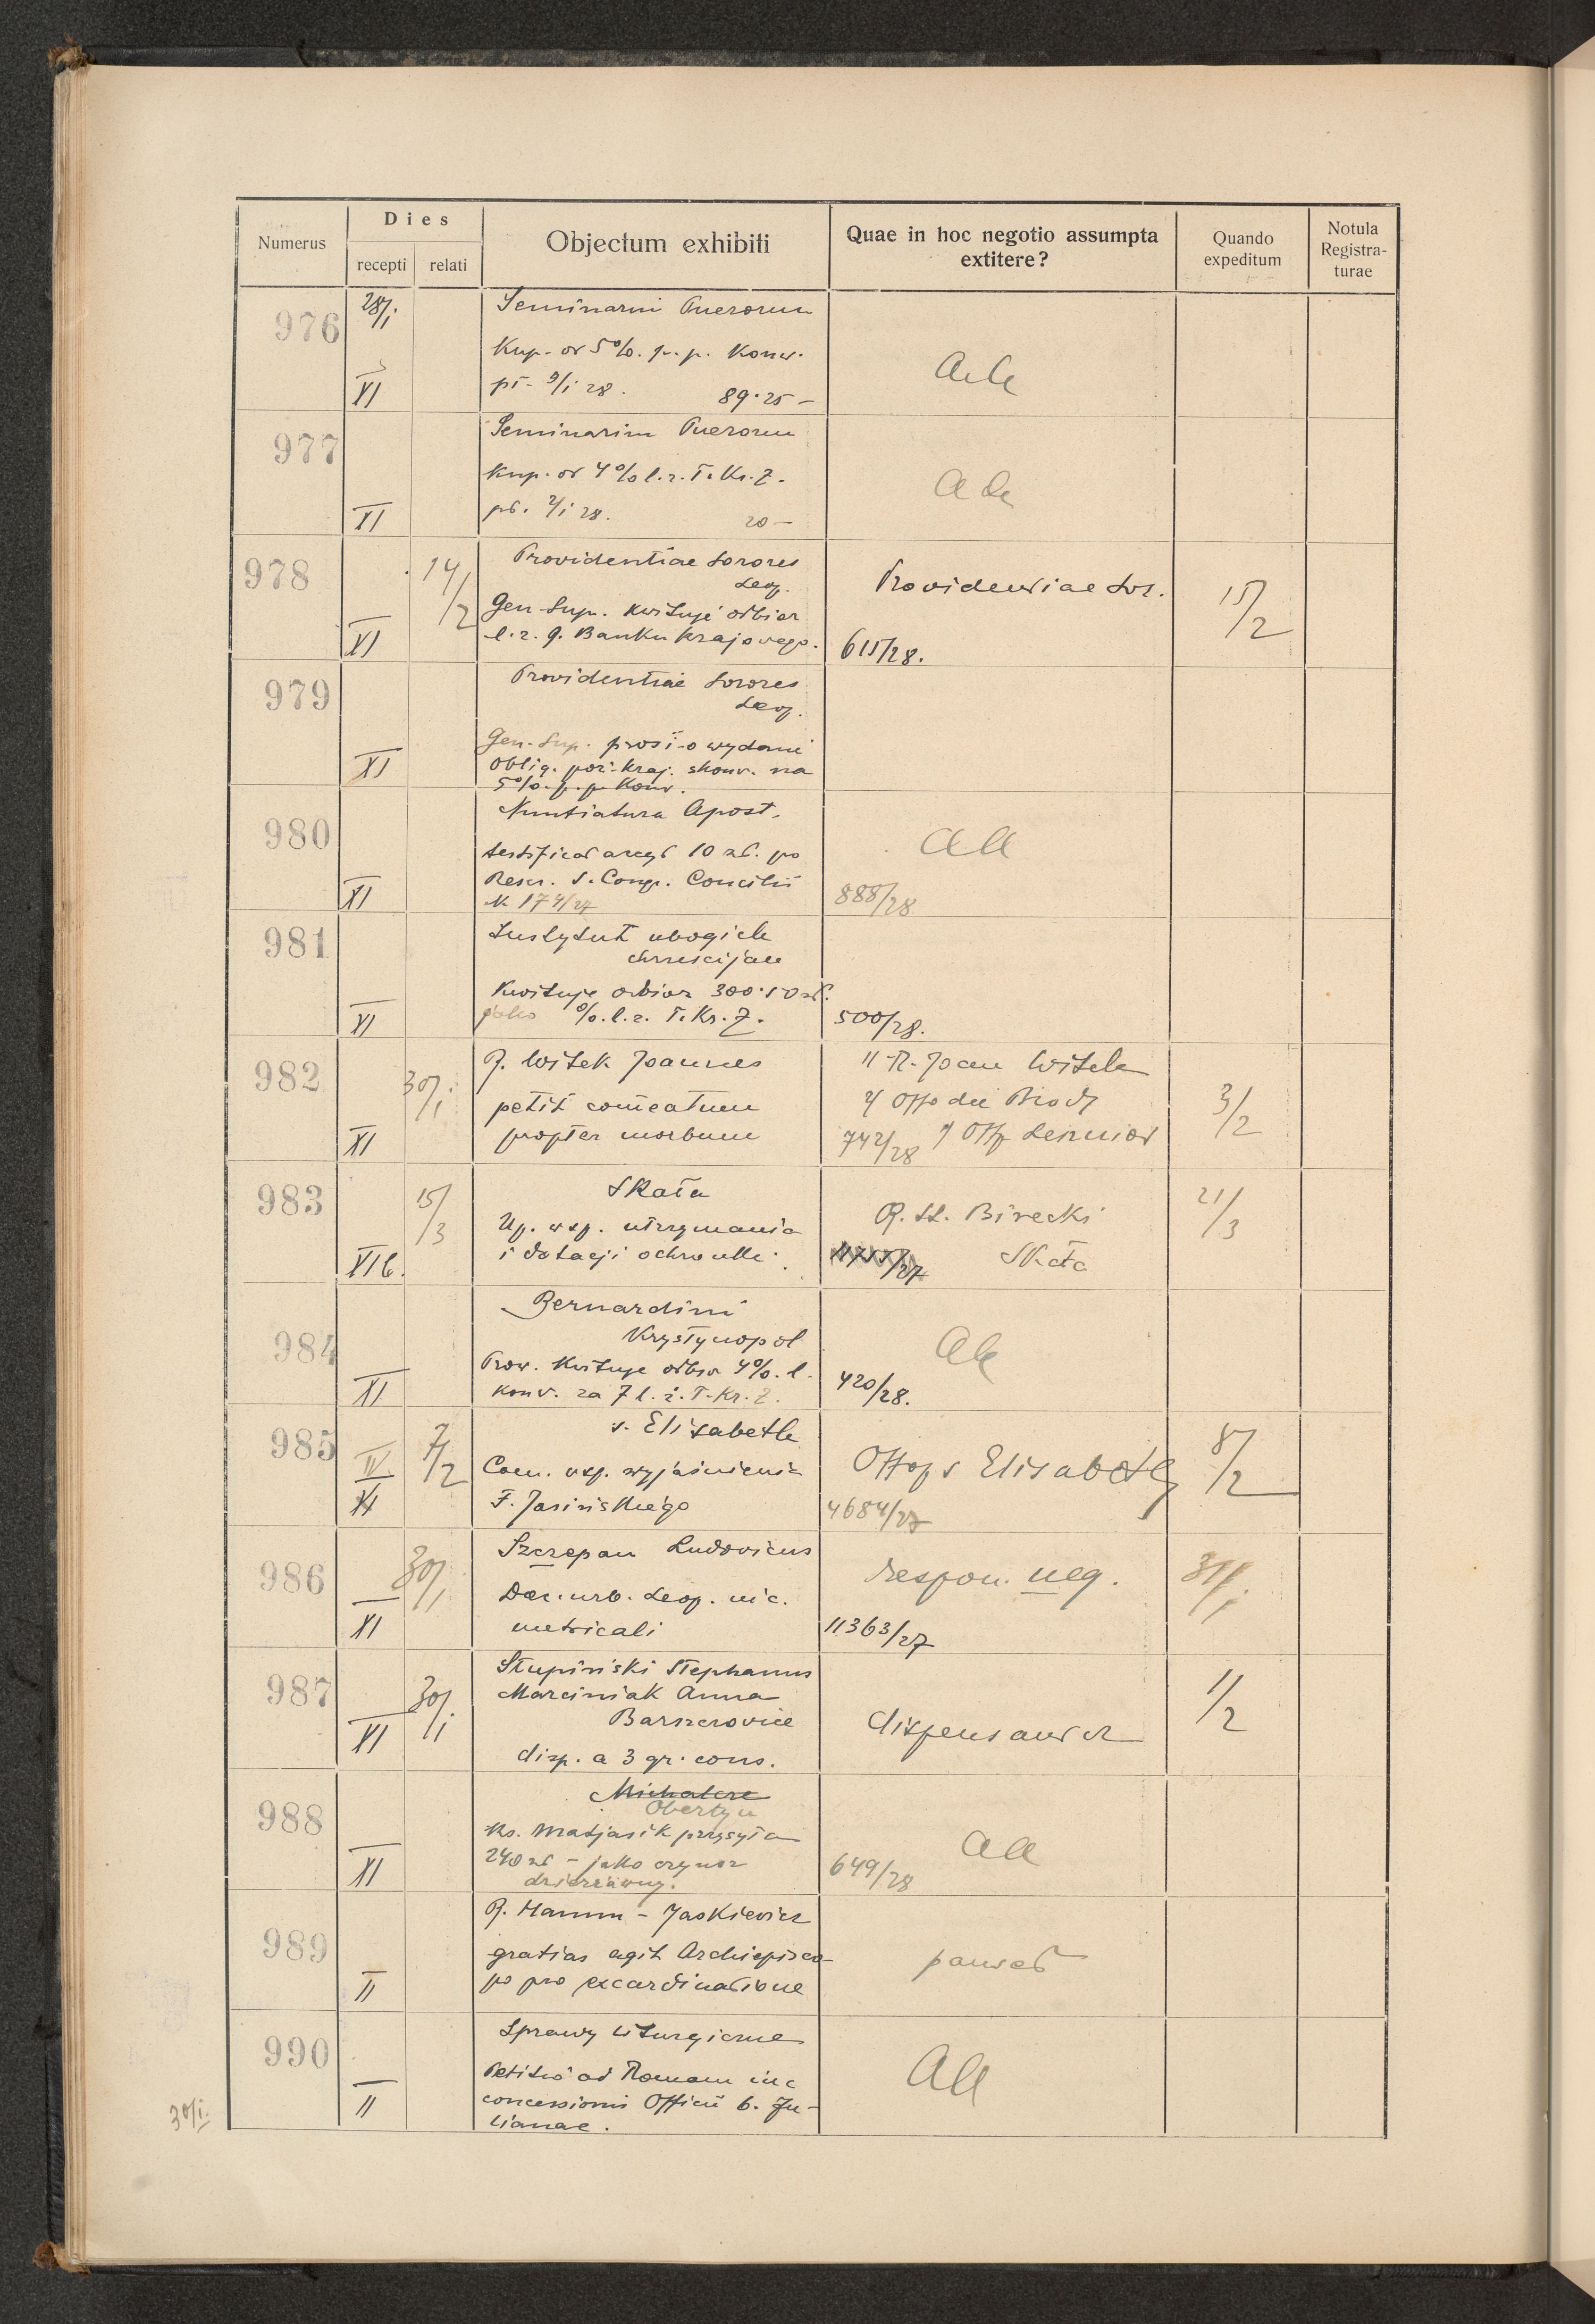 Numerus
Dies
recepti
relati
Objectum exhibiti
Quae in hoc negotio assumpta extitere?
Quando expeditum
Notula Registra-turae
976
28/I
XI
Seminarii Puerorum
Kup. od 5%. p. p. Konw.
pł. 9/I 28. 89.25 -
977
XI
Seminarium Puerorum
Kup. od 4% l. z. T. Kr. Z.
pł. 2/I 28. 20 -
978
14/2
XI
Providentiae Sorores
Leop.
Gen. Sup. Kwituje odbiór
l. z. g. Banku krajowego.
Providentiae Sor.
615/28.
15/2
979
XI
Providentiae Sorores
Leop.
Gen. Sup. prosi o wydanie
oblig. poż. kraj. skonw. na
5% p. p. Konw.
980
XI
Nuntiatura Apost.
10 zł. po
Rescr. S. Congr. Concilii
N 174/27
aa
888/28
981
XI
Instytut ubogich
chrześcijan
Kwituje odbiór 300.50 zł.
jako %. l. z. T. Kr. Z.
500/28.
982
30/I
XI
R. Witek Joannes
petit comeatum
propter morbum
1/ R. Joan Witek
2/ Offo dec Brody
742/28
3/2
983
15/3
VIb.
Skała
Up. wsp. utrzymania
i dotacji ochronki.
R. St. Birecki
Skała
11755/27
21/3
984
XI
Bernardini
Krystynopol
Prow. Kwituje odbiór 4%. l.
Konw. za 7 l. z. T. Kr. Z.
420/28.
985
7/2
IV
XI
s. Elisabeth
Coem. wsp. wyjaśnienia
F. Jasińskiego
Offo p s Elisabeth
4684/27
8/2
986
30/I
XI
Szczepan Ludovicus
Dec. urb. Leop. nic.
metricali
respon. neg.
11363/27
31/I
987
30/I
XI
Stupiński Stephanus
Marciniak Anna
Barszczowice
disp. a 3 gr. cons.
dispensantur
1/2
988
XI
Michalcze
Obertyn
Ks. Matjasik przysyła
240 zł - jako czynsz
dzierżawny.
aa
649/28
989
II
R. Hamm - Jaśkiewicz
gratias agit Archiepisco-
po pro excardinatione
990
30/I.
II
Sprawy liturgiczne
Petitio ad Romam inc
concessionis Officii b. Ju-
lianae.
Aa